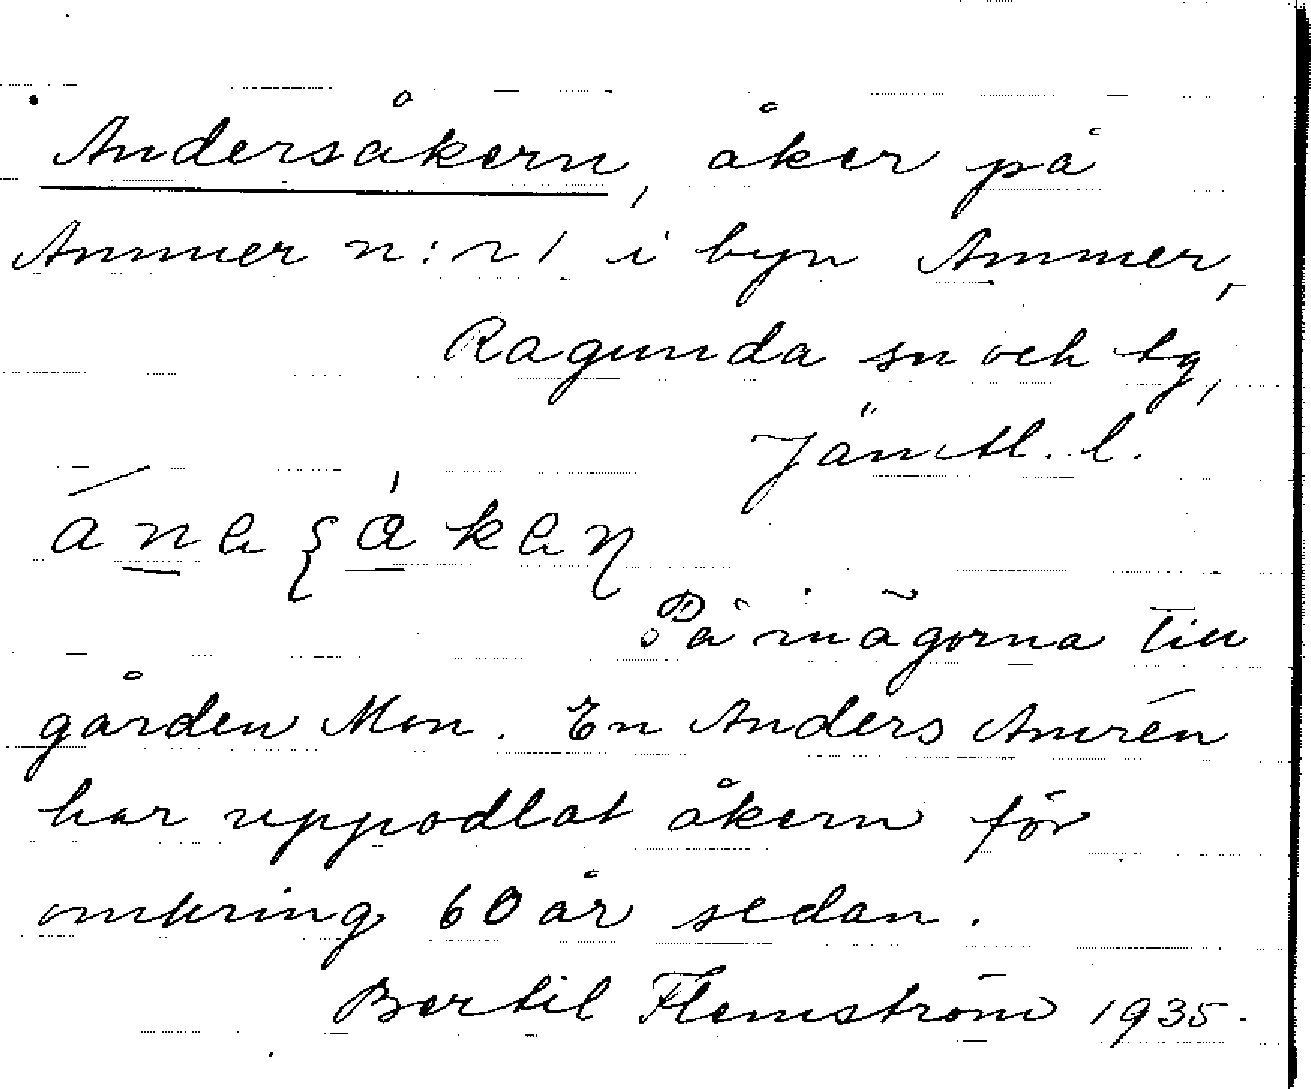 Andersåkern, åker på
Ammer n:r 1 i byn Ammer,
Ragunda sn och tg,
Jämtl. l.
På inägorna till
gården Mon. En Anders Amrén
har uppodlat åkern för
omkring 60 år sedan.
Bertil Flemström 1935.